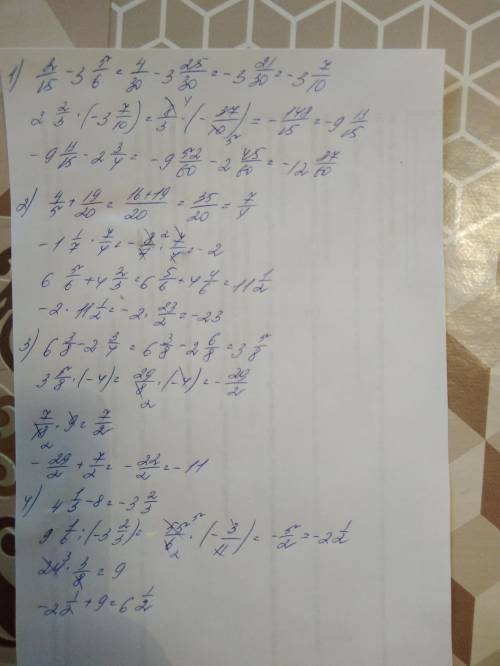 1) 2/15 - 3 5/6 = 4/30 - 3 25/30 = -3 21/30 = -3 7/10
2 2/3 · (-3 7/10) = 8/3 · (-37/10) = -148/15 = -9 11/15
-9 11/15 - 2 3/4 = -9 52/60 - 2 45/60 = -12 37/60
2) 4/5 + 19/20 = 16+19/20 = 35/20 = 7/4
-1 1/7 · 7/4 = -8/7 · 7/4 = -2
6 5/6 + 4 2/3 = 6 5/6 + 4 4/6 = 11 1/2
-2 · 11 1/2 = -2 · 23/2 = -23
3) 6 3/8 - 2 3/4 = 6 3/8 - 2 6/8 = 3 5/8
3 5/8 · (-4) = 29/8 · (-4) = -29/2
7/18 · 9 = 7/2
-29/2 + 7/2 = -22/2 = -11
4) 4 1/3 - 8 = -3 2/3
9 1/6 : (-3 2/3) = 55/6 · (-3/11) = -5/2 = -2 1/2
24 · 3/8 = 9
-2 1/2 + 9 = 6 1/2